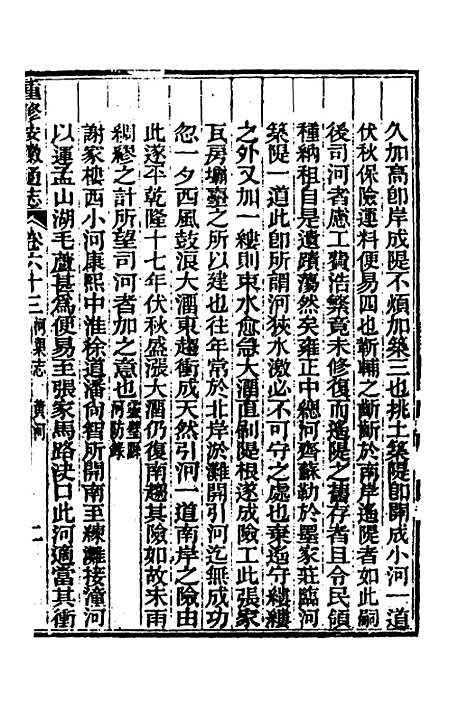 久加高卽岸成隄不煩加築三也挑土築隄卽開成小河一道
伏秋保險運料便易四也靳輔之斷斷於南岸遙隄者如此嗣
後司河者慮工費浩繁竟未修復而遙隄之舊存者且令民領
種納租自是遺蹟蕩然矣雍正中總河齊蘇勒於墨家莊臨河
築隄一道此卽所謂河狹水激必不可守之處也棄遙守縷縷
之外又加一縷則束水愈急大溜直剷隄根遂成險工此張家
瓦房壩臺之所以建也往年常於北岸淤灘開引河迄無成功
忽一夕西風鼓浪大溜東趨衝成天然引河一道南岸之險由
此遂平乾隆十七年伏秋盛漲大溜仍復南趨其險如故未雨
綢繆之計所望司河者加之意也靈璧縣河防錄
謝家樓西小河康熙中淮徐道潘尙智所開南至練灘接潼河
以運孟山湖毛蘆甚爲便易至張家馬路決口此河適當其衝
重修安徽通志 卷六十三 河渠志 黃河 二